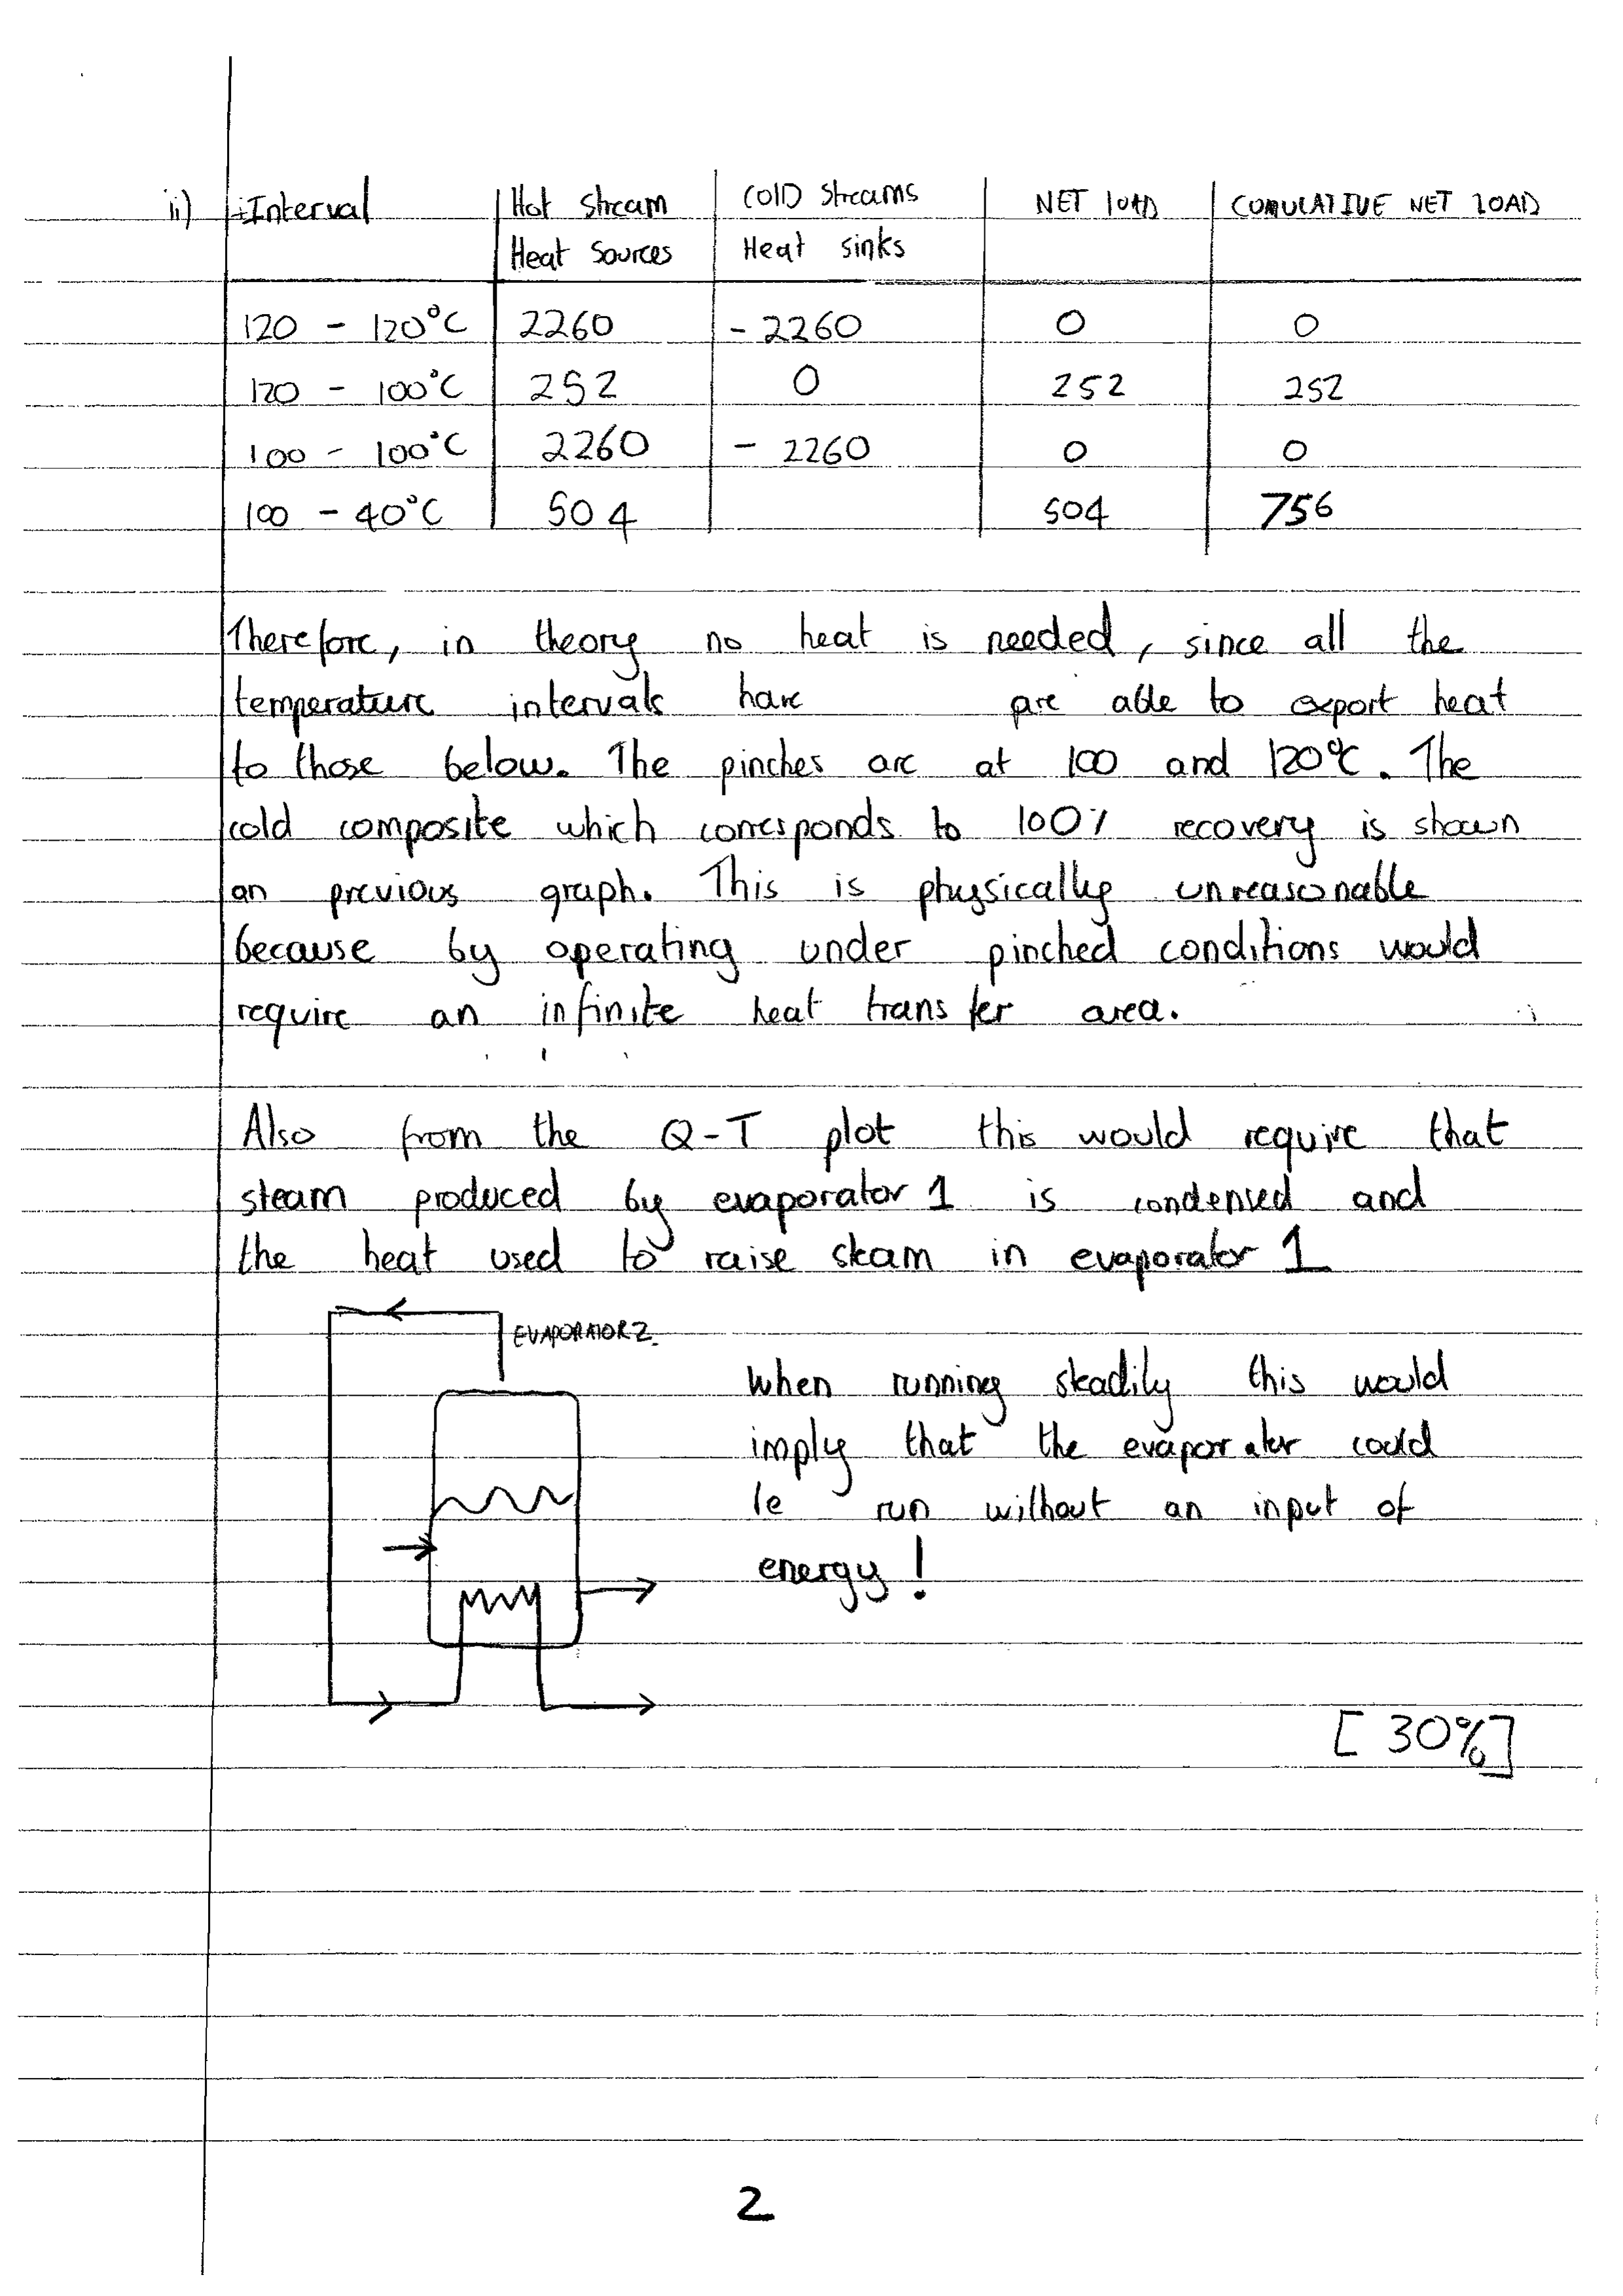 ii) Interval | Hot Stream | COLD Streams | NET LOAD | CUMULATIVE NET LOAD
Heat Sources | Heat sinks
120 - 120°C | 2260 | - 2260 | 0 | 0
120 - 100°C | 252 | 0 | 252 | 252
100 - 100°C | 2260 | - 2260 | 0 | 0
100 - 40°C | 504 | 504 | 756
Therefore, in theory no heat is needed, since all the
temperature intervals have are able to export heat
to those below. The pinches are at 100 and 120°C. The
cold composite which corresponds to 100% recovery is shown
on previous graph. This is physically unreasonable
because by operating under pinched conditions would
require an infinite heat transfer area.
Also from the Q-T plot this would require that
steam produced by evaporator 1 is condensed and
the heat used to raise steam in evaporator 1
EVAPORATOR 2
When running steadily this would
imply that the evaporator could
be run without an input of
energy!
[30%]
2